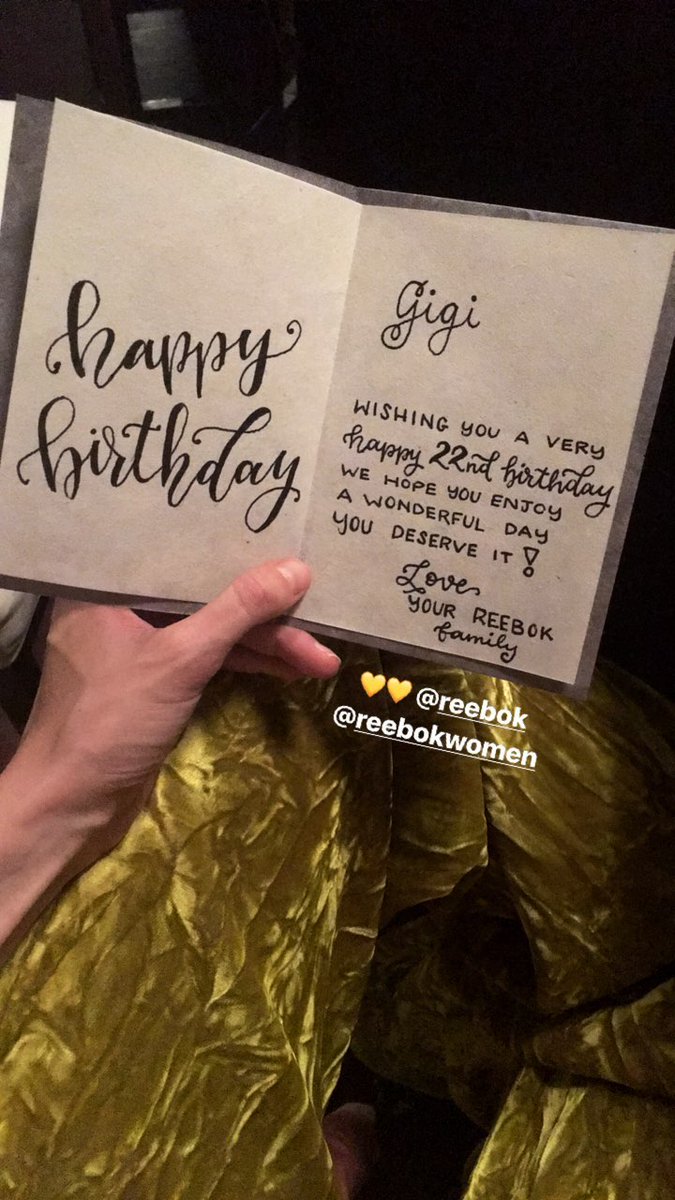 happy
birthday
Gigi
WISHING YOU A VERY
happy 22nd birthday
WE HOPE YOU ENJOY
A WONDERFUL DAY
YOU DESERVE IT!
Love,
YOUR REEBOK
family
💛💛 @reebok
@reebokwomen